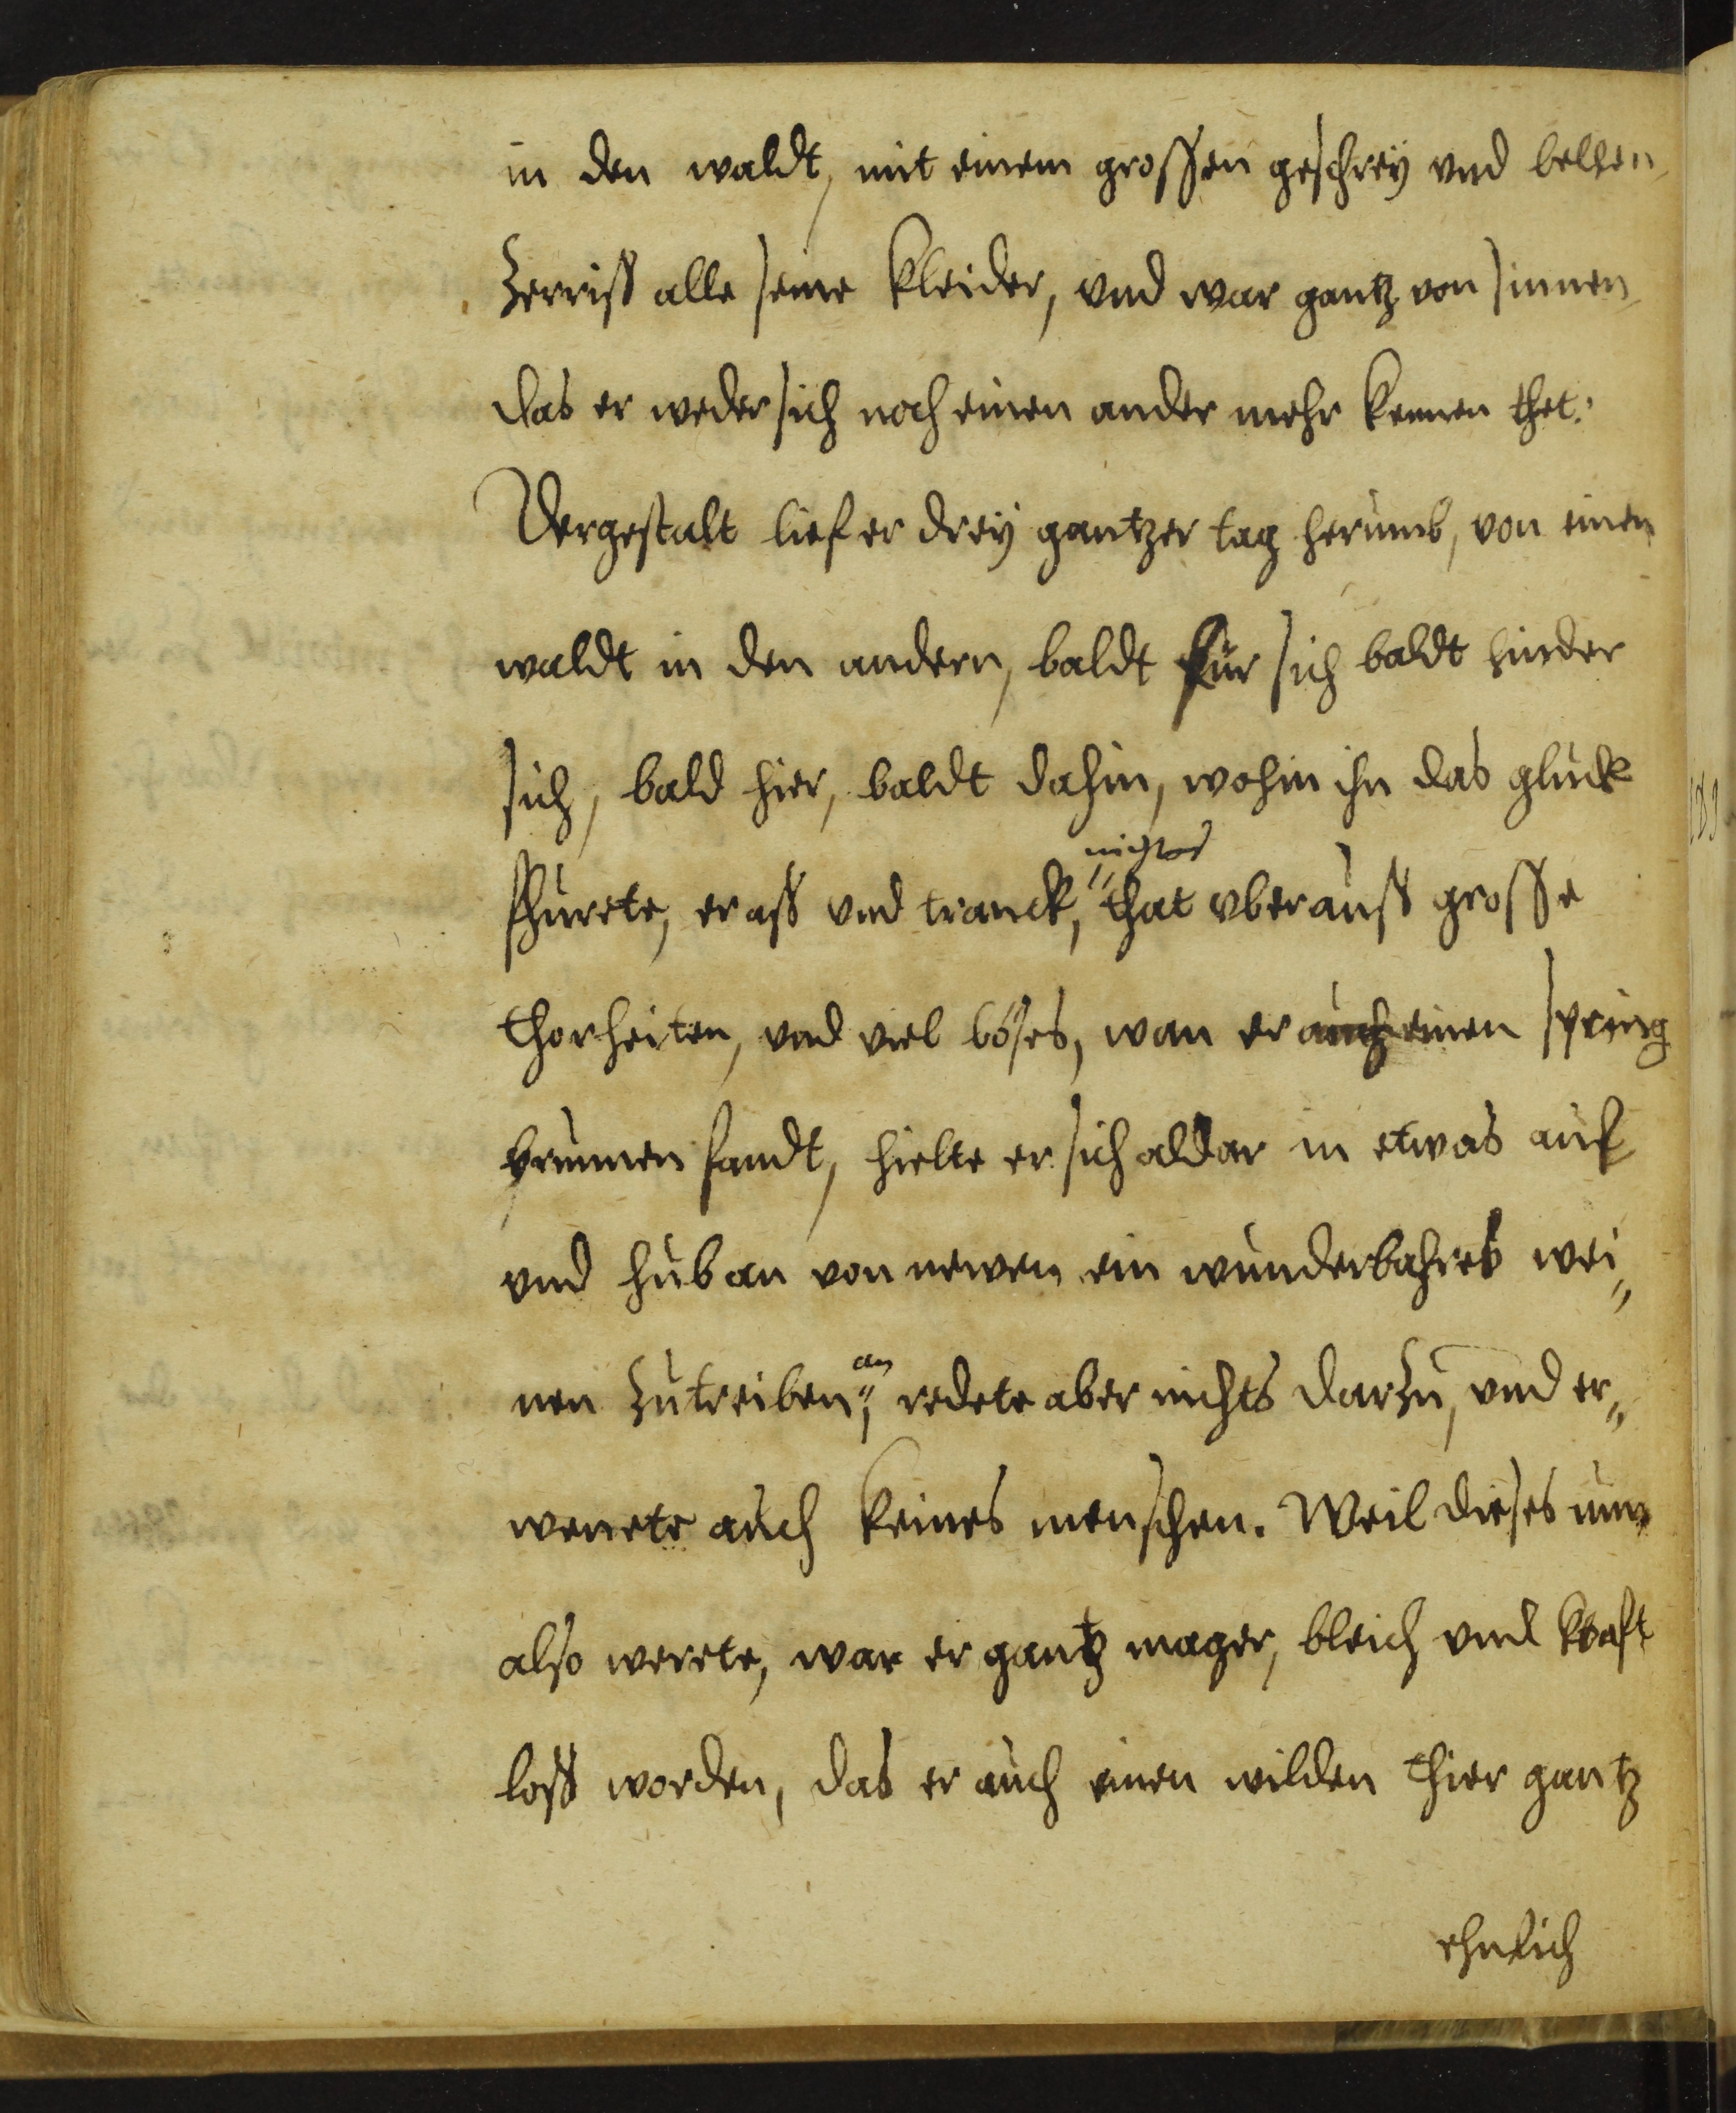 in den waldt, mit einem grossen geschrey vnd bellen,
Zerriß alle seine kleider, vnd war gantz von sinnen,
das er weder sich noch einen ander mehr kennen thet.
Dergestalt lief er drey gantzer tag herumb, von einen
waldt in den andern, baldt für sich baldt hinder
sich, bald hier, baldt dahin, wohin ihn das gluck
nichts
fhurete, er aß vnd tranck, that vberauß grosse
thorheiten, vnd viel böses, wan er auch einen spring
brunnen fandt, hielte er sich aldar in etwas auf
vnd hub an von newen ein wunderbahres wei„
an
nen zutreiben, redete aber nichts darzu, vnd er„
wenete auch keines menschen. Weil dieses nun
also werete, war er gantz mager, bleich vnd kraft
loß worden, das er auch einen wilden thier gantz
ehnlich